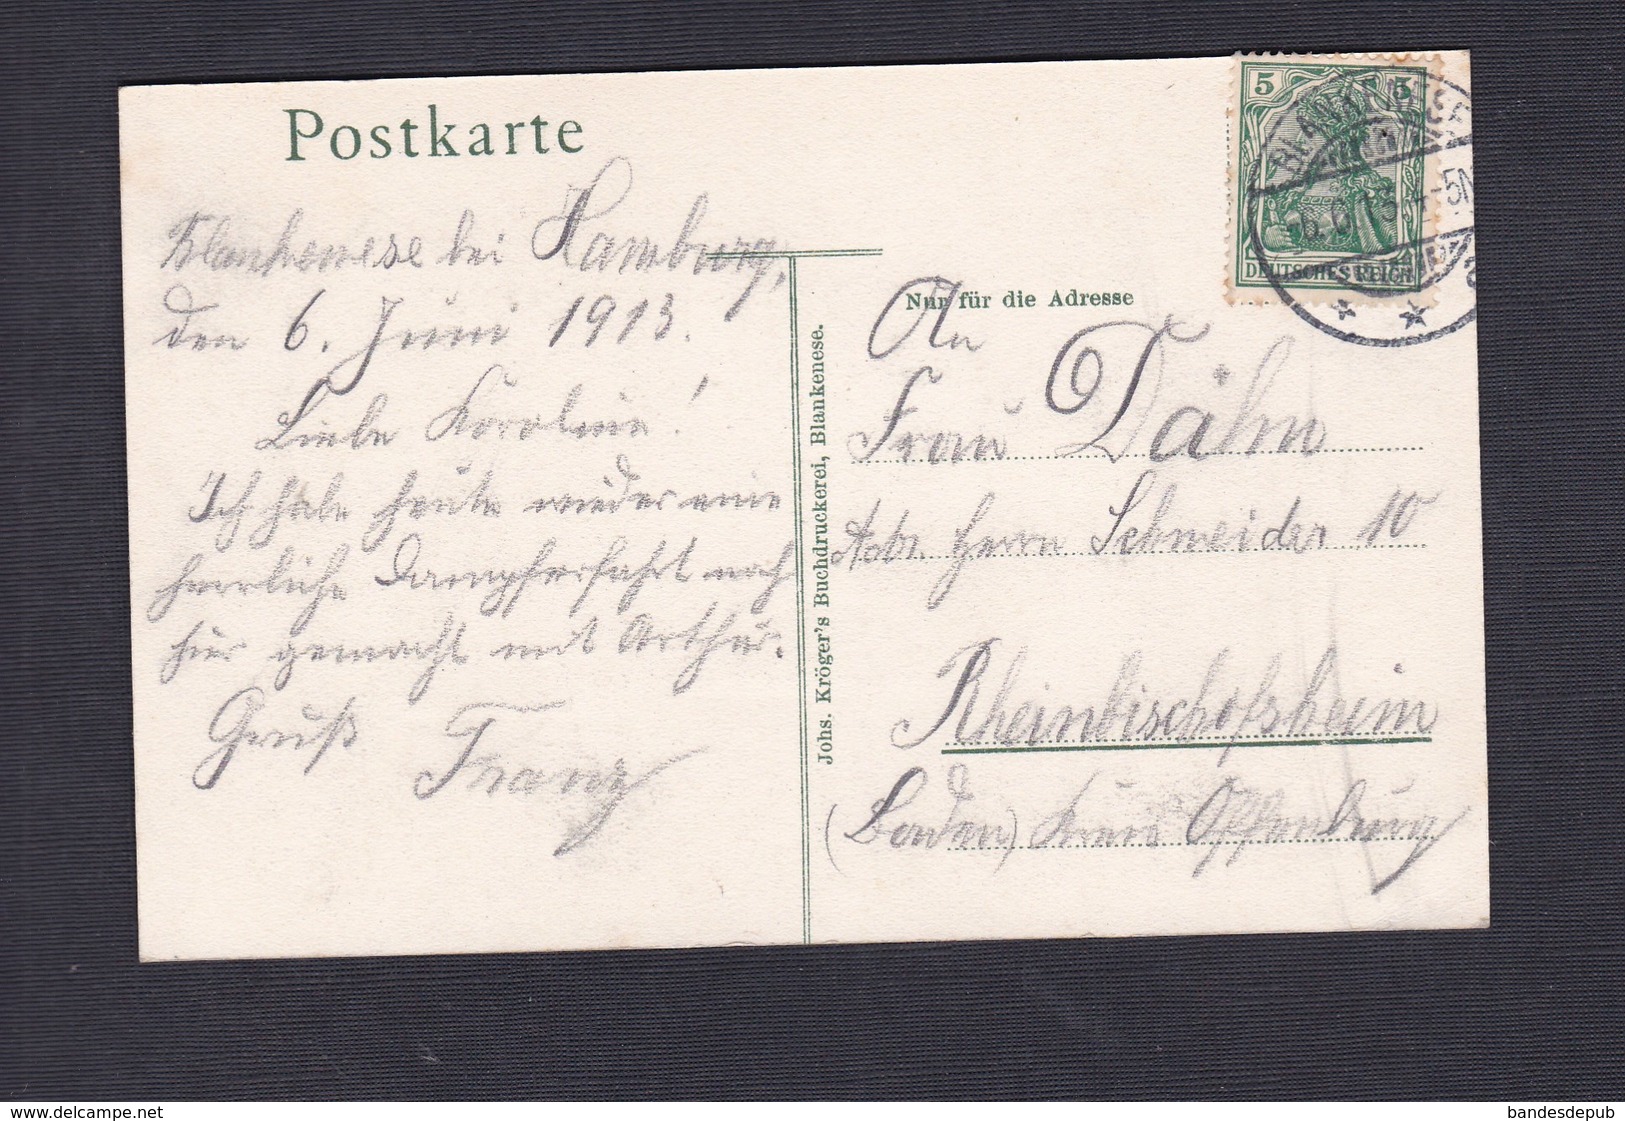 Postkarte
Blankenese bei Hamburg,
den 6. Juni 1913.
Liebe Karoline!
Ich habe heute wieder eine
herrliche Dampferfahrt nach
hier gemacht mit Arthur.
Gruß Franz
Johs. Kröger's Buchdruckerei, Blankenese.
5 5
DEUTSCHES REICH
BLANKENESE
4-5N
Nur für die Adresse
An
Frau Dähn
Adr. Herrn Schneider 10
Rheinbischofsheim
(Baden) Kreis Offenburg
delcampe.net
bandesdepub